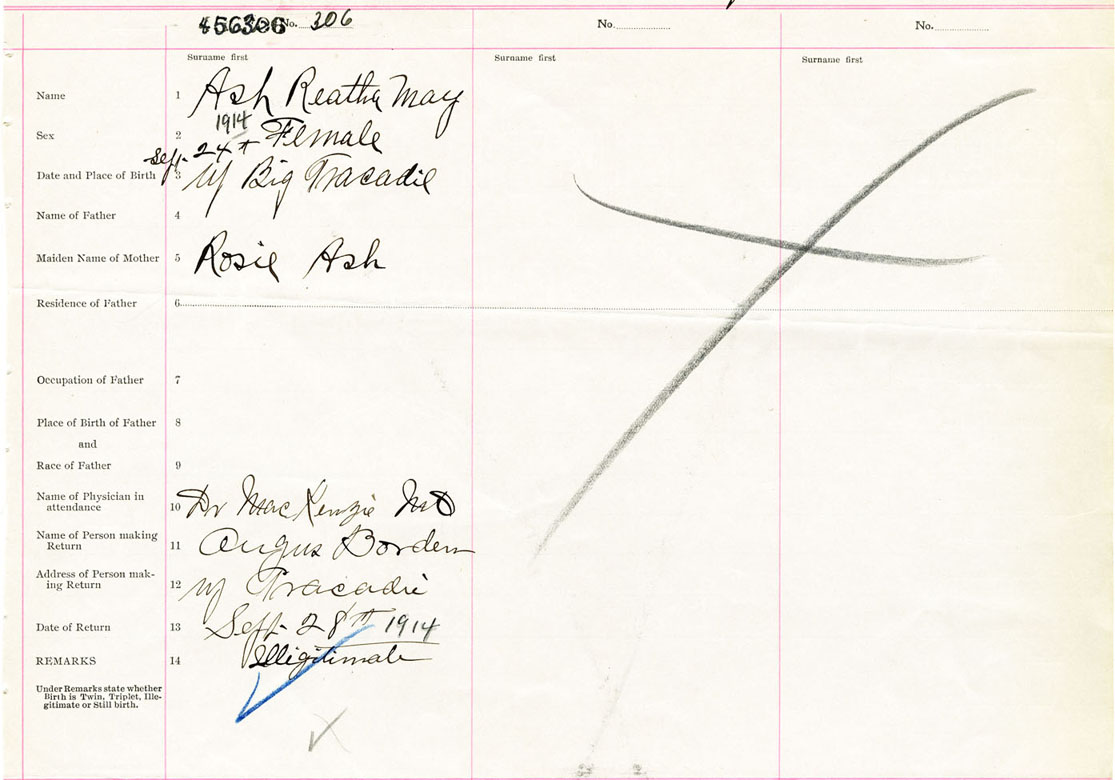 No. 306
No.
No.
Surname first
Surname first
Surname first
Name 1 Ash Reatha May
1914
Sex 2 Female
Sept. 24th
Date and Place of Birth 3 Big Tracadie
Name of Father 4
Maiden Name of Mother 5 Rosie Ash
Residence of Father 6
Occupation of Father 7
Place of Birth of Father 8
and
Race of Father 9
Name of Physician in
attendance 10 Dr MacKenzie MD
Name of Person making
Return 11 Angus Borden
Address of Person mak-
ing Return 12 Tracadie
Date of Return 13 Sept. 28th 1914
REMARKS 14 Illigitimate
Under Remarks state whether
Birth is Twin, Triplet, Ille-
gitimate or Still birth.